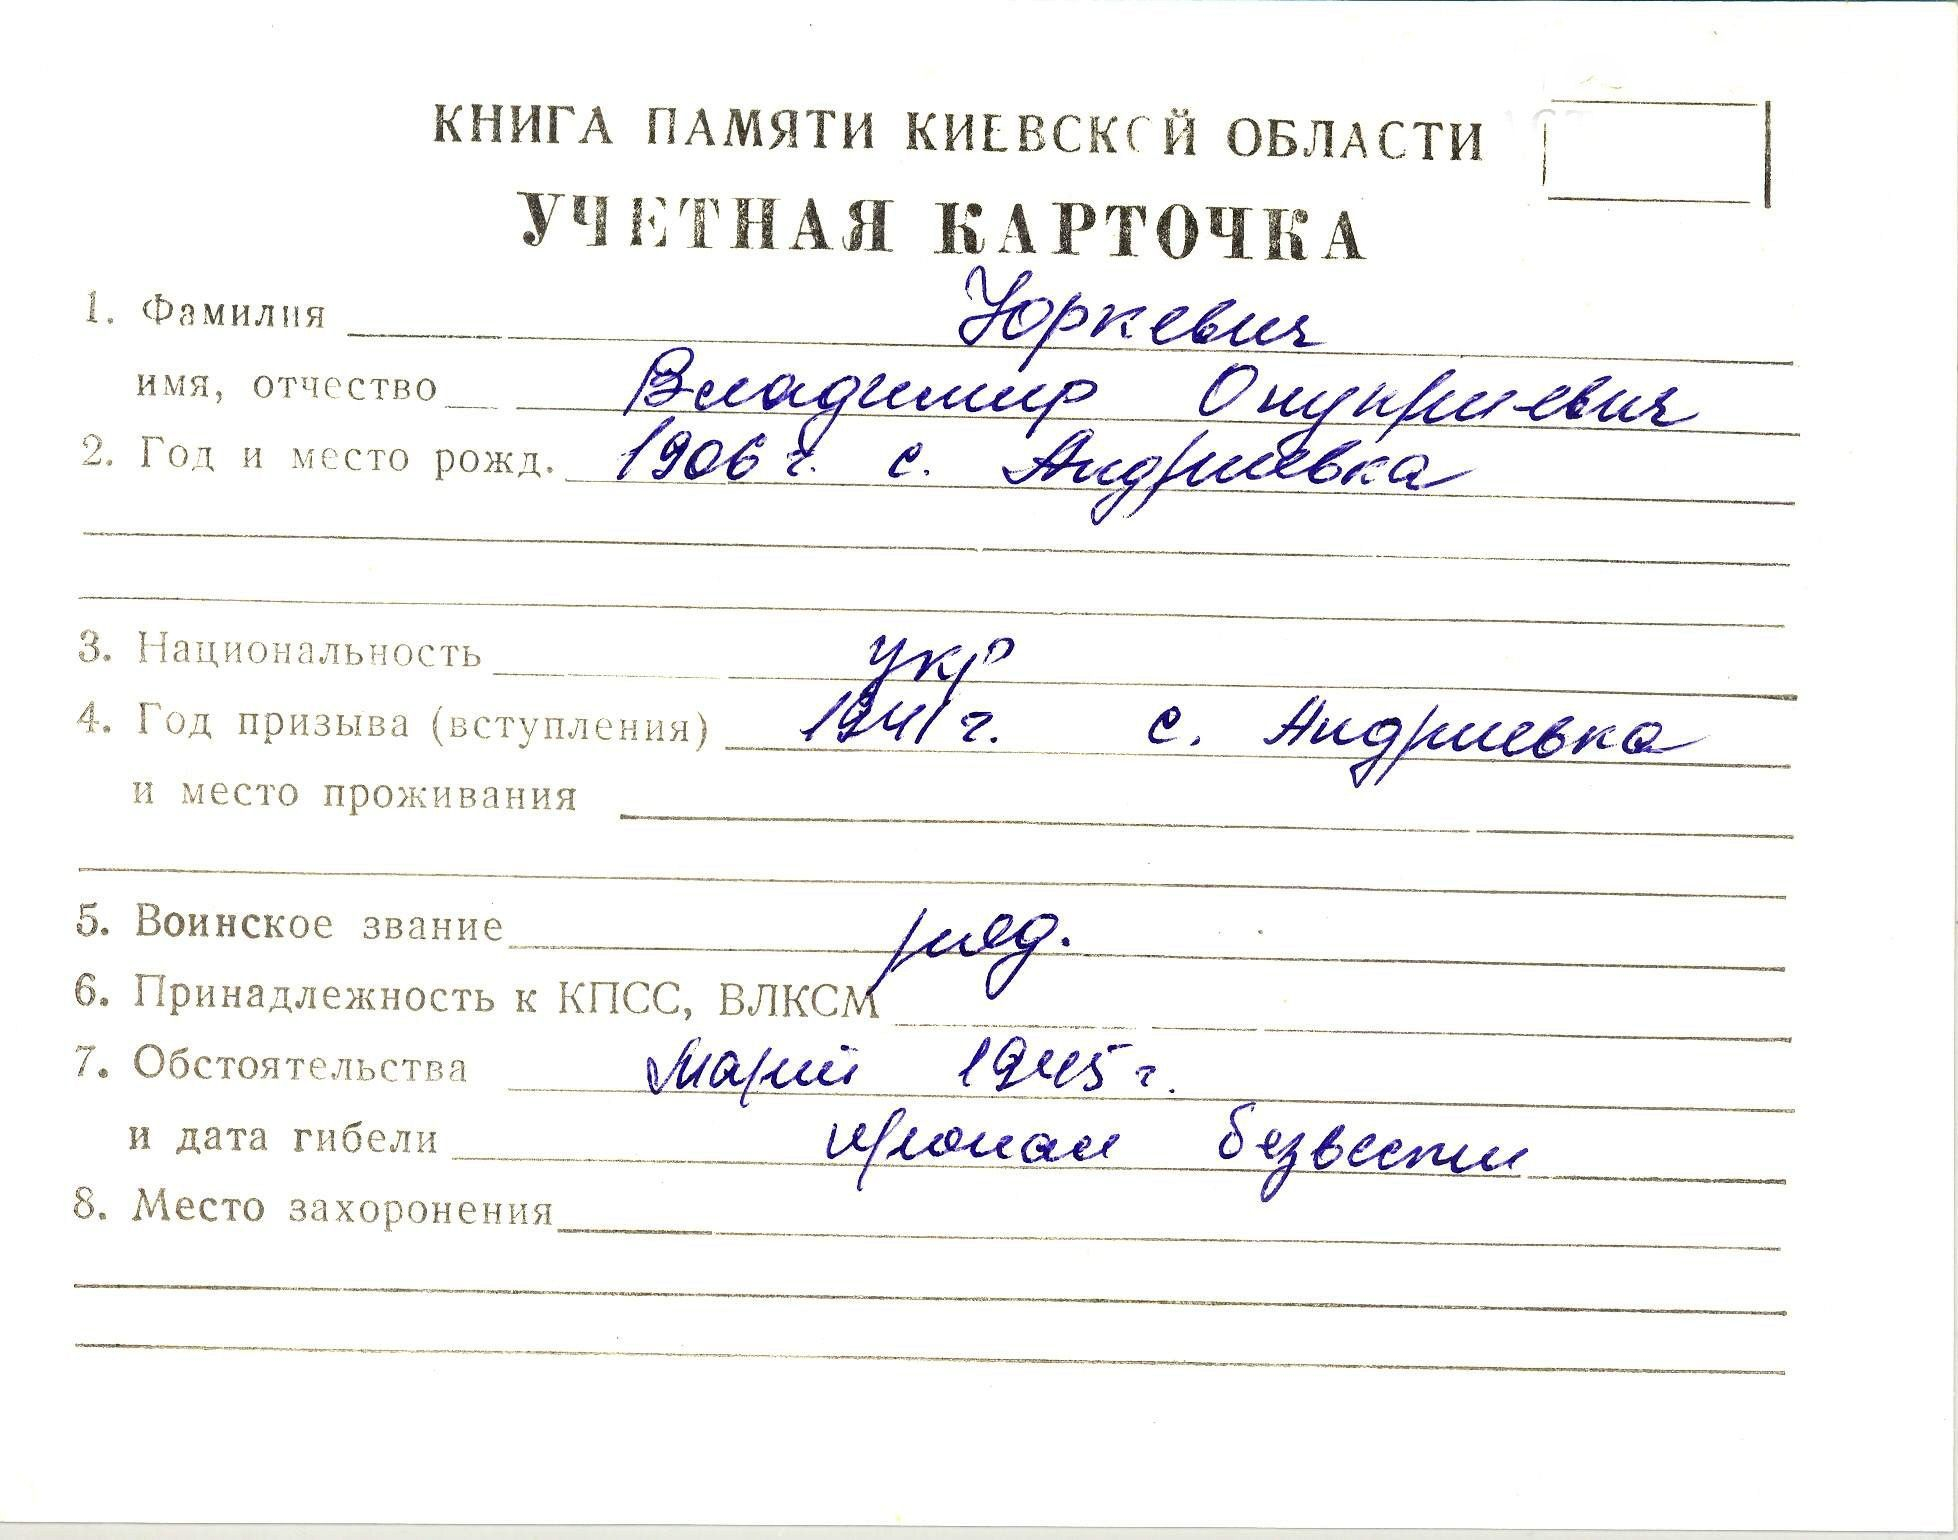 КНИГА ПАМЯТИ КИЕВСКОЙ ОБЛАСТИ
УЧЕТНАЯ КАРТОЧКА
1. Фамилия Юркевич
имя, отчество Владимир Онуприевич
2. Год и место рожд. 1906 г. с. Андриевка
3. Национальность укр
4. Год призыва (вступления) 1941 г. с. Андриевка
и место проживания
5. Воинское звание ряд.
6. Принадлежность к КПСС, ВЛКСМ
7. Обстоятельства Март 1945 г.
и дата гибели пропал безвести
8. Место захоронения